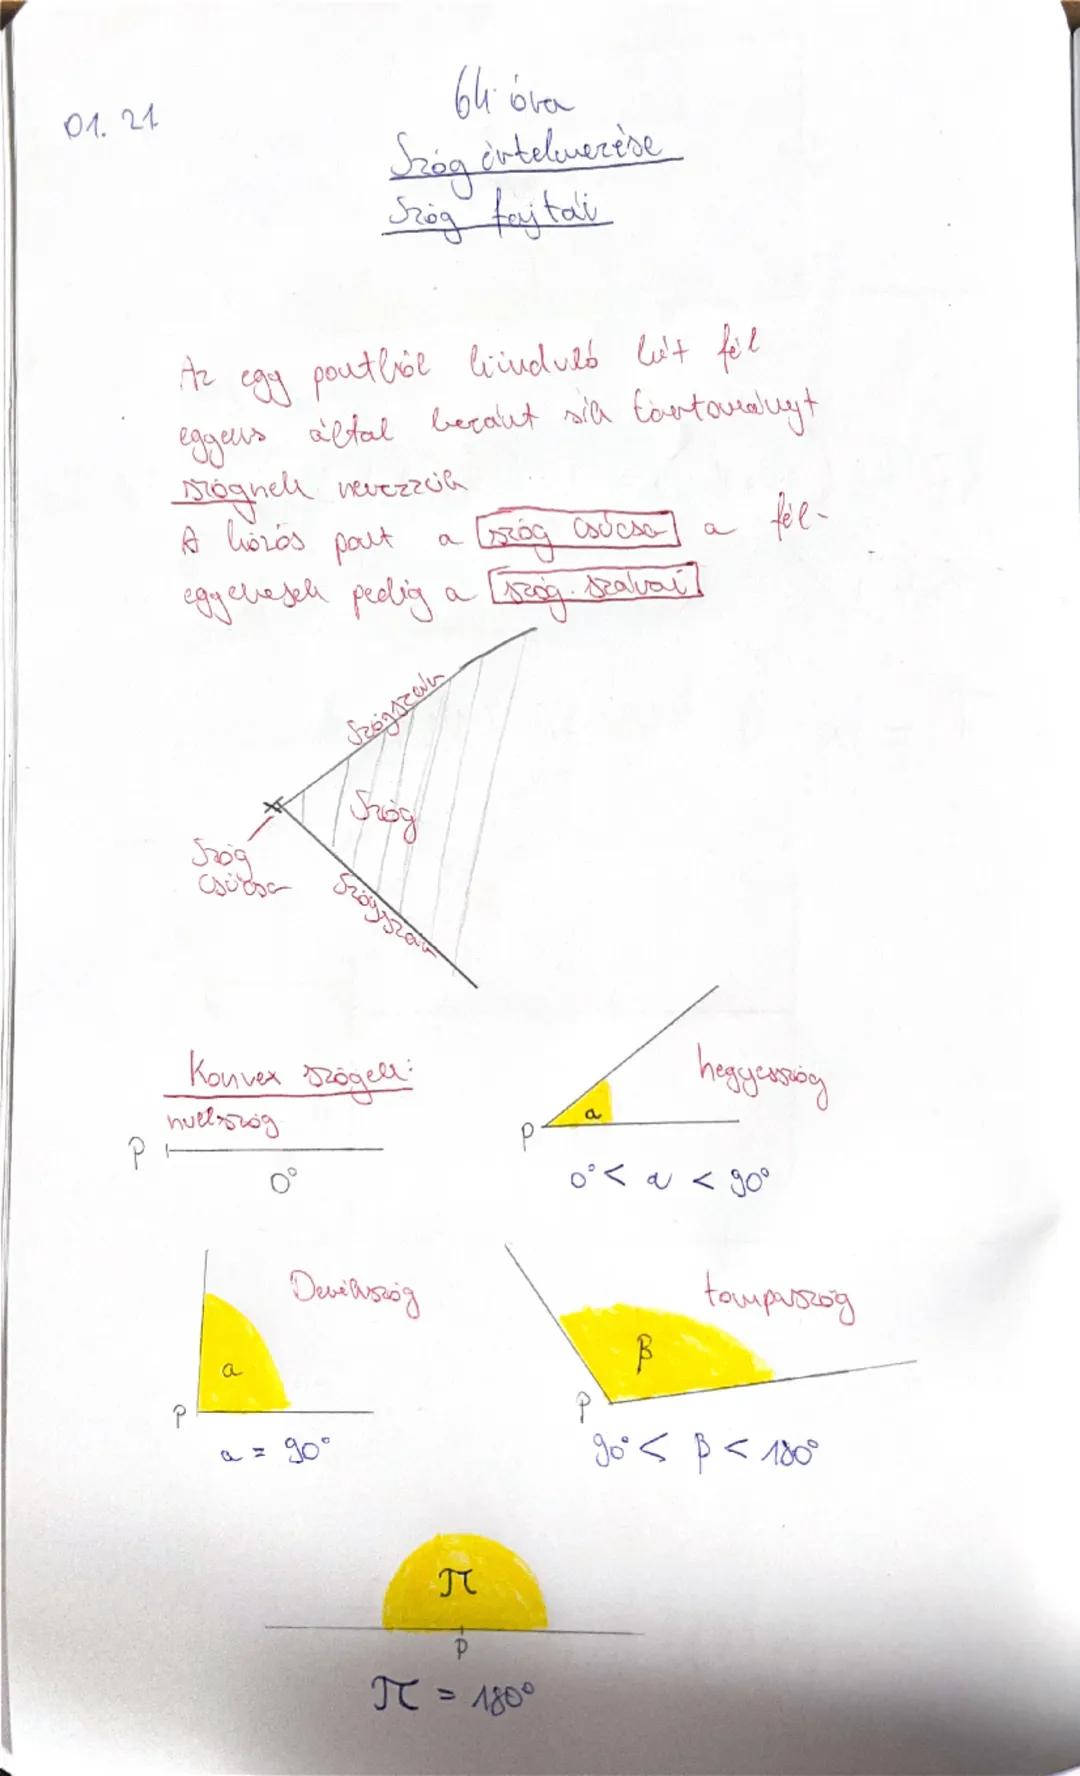 01. 21.
64. óra
Szög értelmezése
Szög fajtái
Az egy pontból kiinduló két fél
egyenes által bezárt sík tartományt
szögnek nevezzük
A közös pont a szög csúcsa a fél-
egyenesek pedig a szög szárai
Szögszár
Szög
Szög
csúcsa
Szögszár
Konvex szögek:
nullszög
P
0°
hegyesszög
a
P
0° < α < 90°
Derékszög
a
P
a = 90°
tompaszög
β
P
90° < β < 180°
π
P
π = 180°